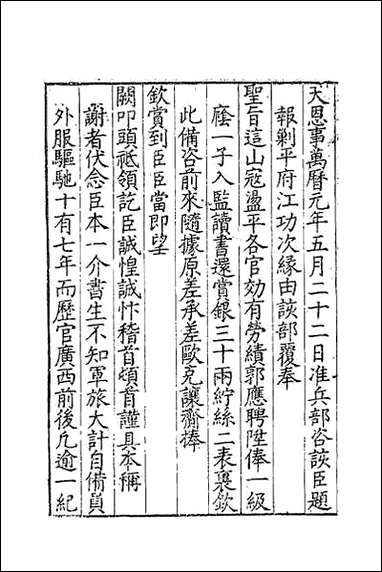 天恩事萬曆元年五月二十二日准兵部咨該臣題
報剿平府江功次緣由該部覆奉
聖旨這山寇盪平各官効有勞績郭應聘陞俸一級
廕一子入監讀書還賞銀三十兩紵絲二表裏欽
此備咨前來隨據原差承差歐克讓齎捧
欽賞到臣臣當即望
闕叩頭祗領訖臣誠惶誠忭稽首頓首謹具本稱
謝者伏念臣本一介書生不知軍旅大計自備員
外服驅馳十有七年而歷官廣西前後凢逾一紀